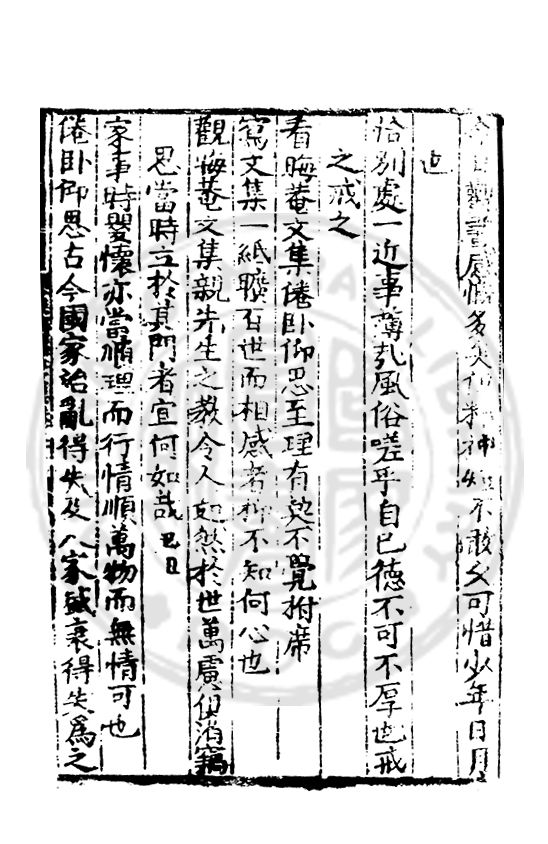 今日觀書處悟多矣但精神如不敢又可惜少年日月
也
恰別處一近事薄乱風俗嗟乎自已德不可不厚也戒
之戒之
看晦菴文集倦卧仰思至理有契不覺拊席
寫文集一紙曠百世而相感者抑不知何心也
觀晦菴文集親先生之教令人超然於世萬慮俱消竊
思當時立於其門者宜何如哉 己丑
家事時嬰懷亦當順理而行情順萬物而無情可也
倦卧仰思古今國家治亂得失及人家盛衰得失爲之